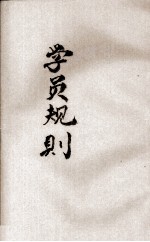 学员规则